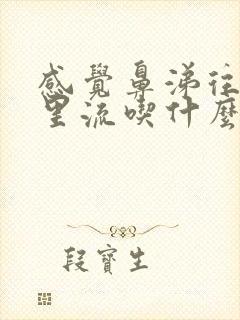 感覺鼻涕往
里流喫什麼
段寶生